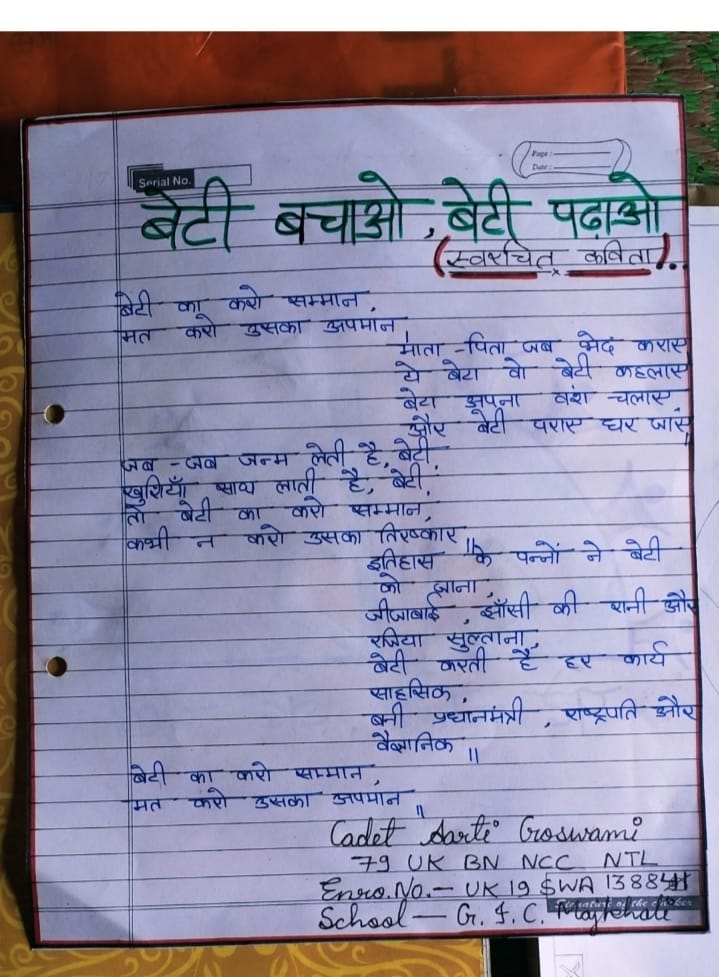 Serial No.
Page :
Date :
बेटी बचाओ, बेटी पढ़ाओ
(स्वरचित कविता)..
बेटी का करो सम्मान,
मत करो उसका अपमान,
माता-पिता जब भेद कराए
ये बेटा वो बेटी कहलाए
बेटा अपना वंश चलाए
और बेटी पराए घर जाए॥
जब-जब जन्म लेती है, बेटी,
खुशियाँ साथ लाती है, बेटी,
तो बेटी का करो सम्मान,
कभी न करो उसका तिरष्कार॥
इतिहास के पन्नों ने बेटी
को जाना,
जीजाबाई, झाँसी की रानी और
रजिया सुल्ताना,
बेटी करती है हर कार्य
साहसिक,
बनी प्रधानमंत्री, राष्ट्रपति और
वैज्ञानिक॥
बेटी का करो सम्मान,
मत करो उसका अपमान॥
Cadet Aarti Goswami
79 UK BN NCC NTL
Enro.No.- UK 19 SWA 138841
School - G. I. C.